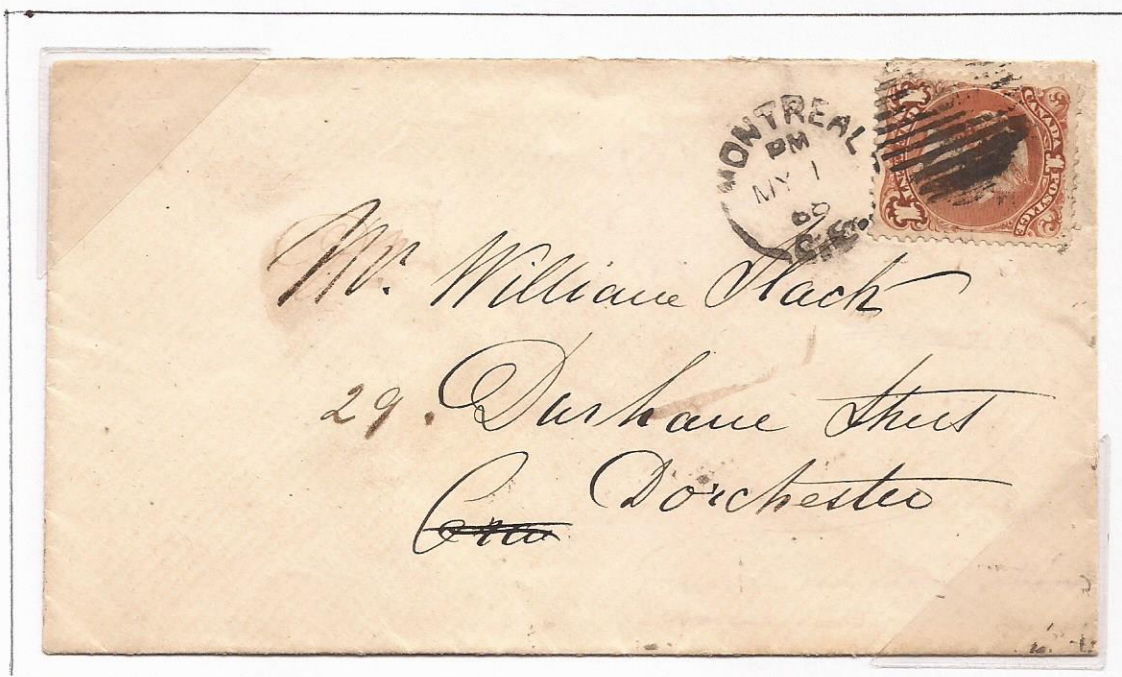 MONTREAL
PM
MY 1
68
C.E.
CANADA POSTAGE
1 1 1
Mr. William Slack
29. Durham Street
Dorchester